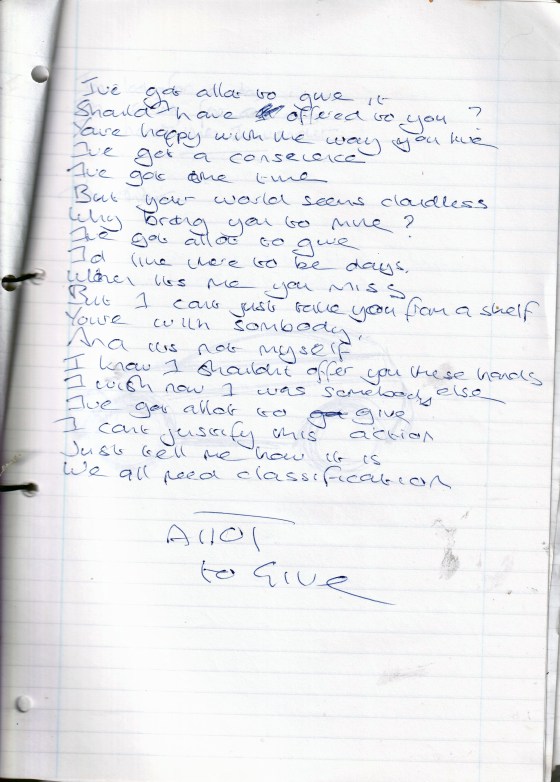 I've got allot to give it
Should I have offered to you?
You're happy with the way you live
I've got a conscience
I've got the time
But your world seems cloudless
Why bring you to mine?
I've got allot to give
I'd like there to be days.
When its me you miss
But I cant just take you from a shelf
You're with sombody,
And its not myself
I know I shouldnt offer you these hands
I wish now I was somebody else
I've got allot to give
I cant justify this action
Just tell me how it is
We all need classification
Allot
to Give